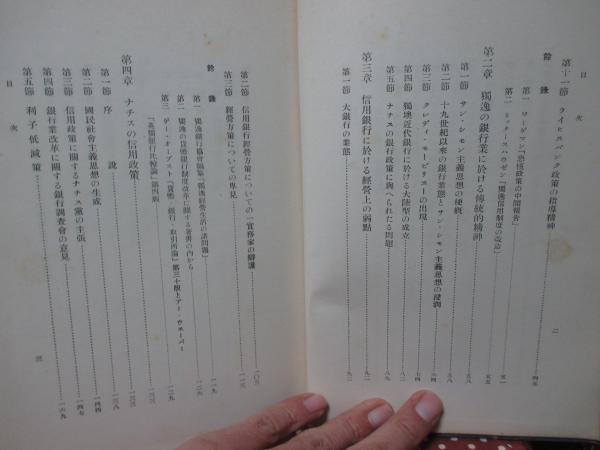 目次
第十一節 ライヒスバンク政策の指導精神 四五
附錄
一 ワーゲマン「恐慌政策の中間報告」
二 ミッタースハウゼン「獨逸信用制度の改造」 五一
第二章 獨逸の銀行業に於ける傳統的精神 五五
第一節 サン・シモン主義思想の梗槪 五八
第二節 十九世紀以來の銀行業態とサン・シモン主義思想の浸潤 五八
第三節 クレディ・モービリエーの出現 六四
第四節 獨墺近代銀行に於ける大陸型の成立 七四
第五節 ナチスの銀行政策に與へられたる問題 八九
第三章 信用銀行に於ける經營上の弱點 九一
第一節 大銀行の業態 九二
二
第二節 信用銀行經營方策についての一實務家の辯護 一〇三
第三節 經營方策についての卑見 一一三
附錄 一一九
一 獨逸銀行協會編纂「獨逸經營生活の諸問題」 一一九
二 獨逸の貨幣銀行制度改革に關する著書の內から 一二六
三 ゲー・オープスト「貨幣・銀行・取引所論」第三十版とアー・ウェーバー
「英獨銀行比較論」第四版 一二九
第四章 ナチスの信用政策 一三三
第一節 序說 一三三
第二節 國民社會主義思想の生成 一三八
第三節 信用政策に關するナチス黨の主張 一四四
第四節 銀行業改革に關する銀行調査會の意見 一四七
第五節 利子低減策 一六九
目次
三